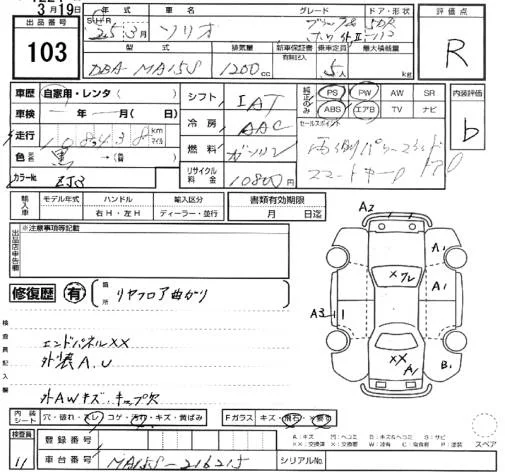 3月19日
出品番号
103
年式 車名 グレード ドア・形状
S・H・R
25 3月 ソリオ ブラック&ホワイトⅡ 5DR
型式 排気量 新車保証書 有開記入 乗車定員 最大積載量
DBA-MA15S 1200cc 5人 kg
評価点
R
内装評価
b
車歴 自家用・レンタ( )
車検 年 月( 日)
走行 km マイル
色 黒 →( 替)
カラーNo. ZJ3
シフト IAT
冷房 AAC
燃料 ガソリン
リサイクル料金 10800円
純正のみ PS PW AW SR
ABS エアB TV ナビ
セールスポイント
両側パワースライド
スマートキー
輸入車 モデル年式 ハンドル 輸入区分
右H・左H ディーラー・並行
書類有効期限
月 日迄
出品店申告欄
※注意事項等記載
修復歴 有 箇所 リヤフロア曲がり
検査員記入欄
エンドパネルXX
外装A.U
外AWキズ・キャップ欠
内装シート 穴・破れ・スレ・コゲ・汚れ・キズ・黄ばみ
Fガラス キズ・飛石・
検査員
11
登録番号
車台番号 MA15S-216215 シリアルNo.
A2
A1
A1
A3
XX
A1
B1
A:キズ U:ヘコミ B:キズ&ヘコミ S:サビ
XX:交換済 X:交換要 W:波有 C:腐食 P:塗装
スペア